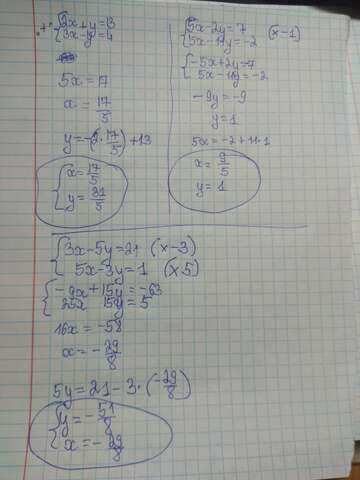 {2x+y=13
3x-y=4
5x=17
x=17/5
y=-(2·17/5)+13
{x=17/5
y=31/5
{5x-2y=7 (x-1)
5x-11y=-2
{-5x+2y=-7
5x-11y=-2
-9y=-9
y=1
5x=-2+11·1
x=9/5
y=1
{3x-5y=21 (x-3)
5x-3y=1 (x5)
{-9x+15y=-63
25x 15y=5
16x=-58
x=-29/8
5y=21-3·(-29/8)
{y=-51/8
x=-29/8